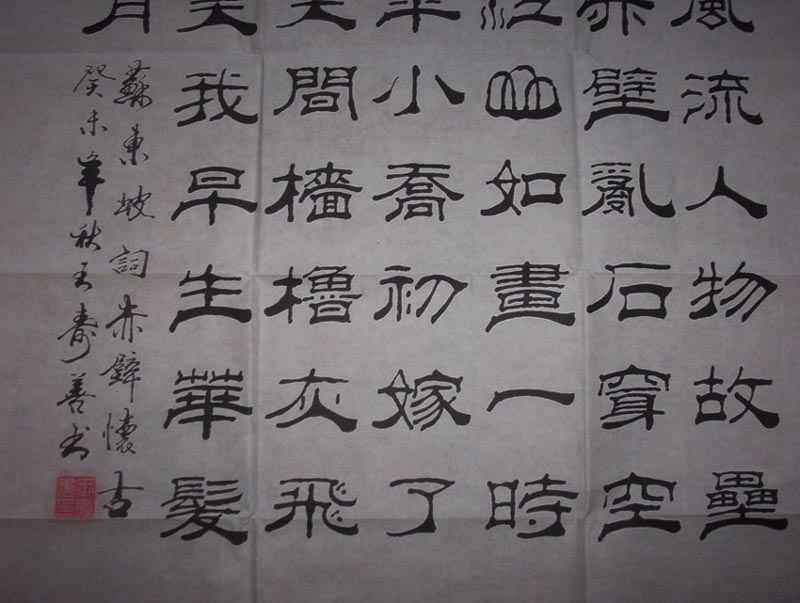 風流人物故壘
赤壁亂石穿空
江山如畫一時
年小喬初嫁了
笑間檣櫓灰飛
笑我早生華髮
月
蘇東坡詞赤壁懷古
癸未年秋王壽善书